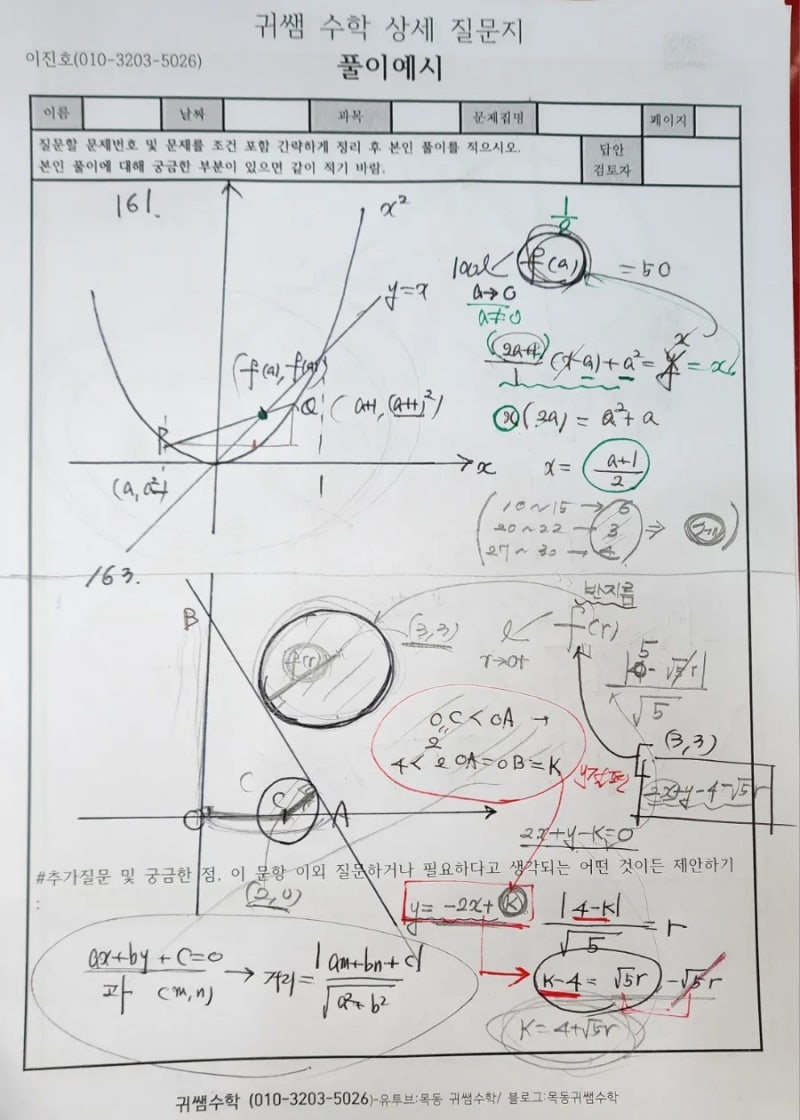 귀쌤 수학 상세 질문지
이진호(010-3203-5026)
풀이예시
이름 날짜 과목 문제집명 페이지
질문할 문제번호 및 문제를 조건 포함 간략하게 정리 후 본인 풀이를 적으시오.
본인 풀이에 대해 궁금한 부분이 있으면 같이 적기 바람.
답안
검토자
161.
x²
y=x
(f(a), f(a))
P
Q (a+1, (a+1)²)
x
(a, a²)
1
1/2
f(a) = 50
a→0
a≠0
(2a+1)
(x-a)+a²= = x
= a²+a
x = (a+1)/2
10~15 → 6
20~22 → 3
27~30 → 4
163.
B
f(r)
(3,3)
반지름
f(r)
r→0+
√5
OC < OA →
2
4 < 2OA=OB=K
y절편
(3,3)
C
A
2x+y-K=0
#추가질문 및 궁금한 점, 이 문항 이외 질문하거나 필요하다고 생각되는 어떤 것이든 제안하기
:
(2,0)
y= -2x+K
|4-K|/√5 = r
ax+by+c=0
과 (m,n)
→ 거리= |am+bn+c|/√(a²+b²)
K-4 = √5r, -√5r
K=4+√5r
귀쌤수학 (010-3203-5026)-유투브:목동 귀쌤수학/ 블로그:목동귀쌤수학